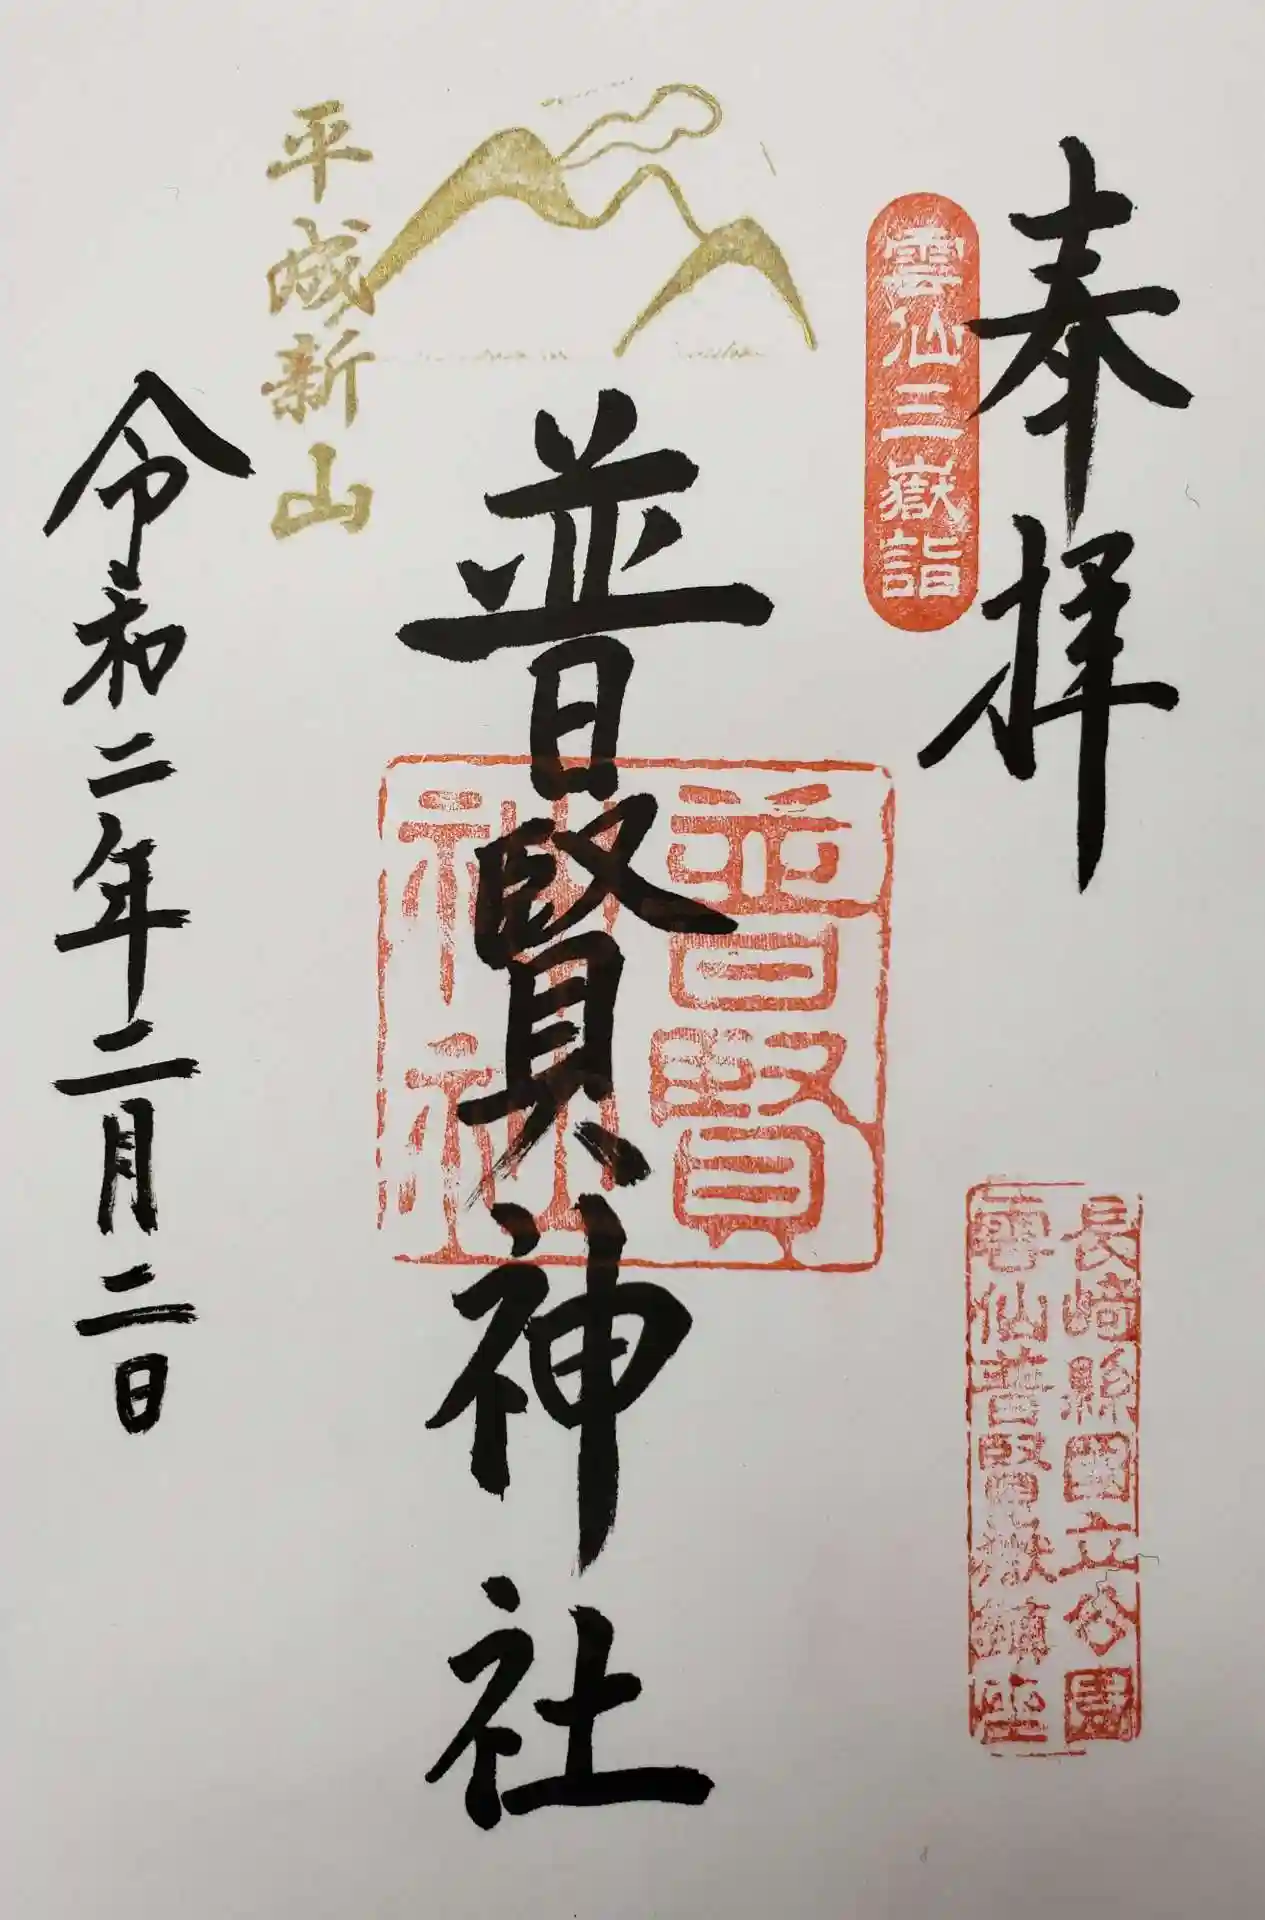 奉拝
雲仙三嶽詣
長崎縣國立公園
雲仙普賢嶽鎮座
普賢神社
普賢
神社
平成新山
令和二年二月二日